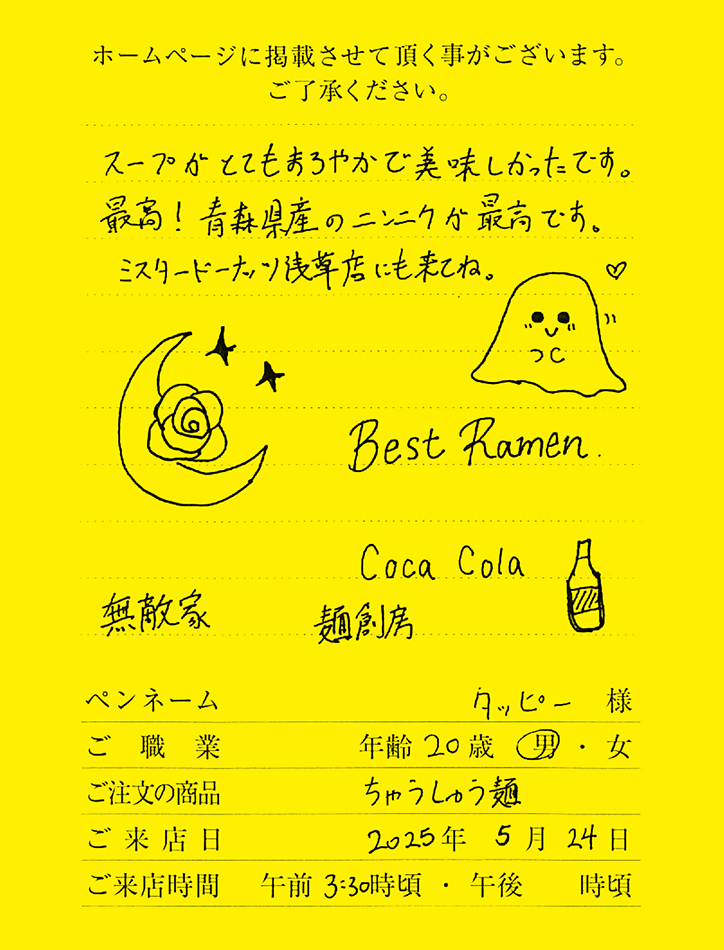 ホームページに掲載させて頂く事がございます。
ご了承ください。
スープがとてもまろやかで美味しかったです。
最高！青森県産のニンニクが最高です。
ミスタードーナッツ浅草店にも来てね。
Best Ramen.
Coca Cola
無敵家 麺創房
ペンネーム タッピー 様
ご職業 年齢 20 歳 男・女
ご注文の商品 ちゃうしゅう麺
ご来店日 2025年 5月 24日
ご来店時間 午前 3:30時頃・午後 時頃